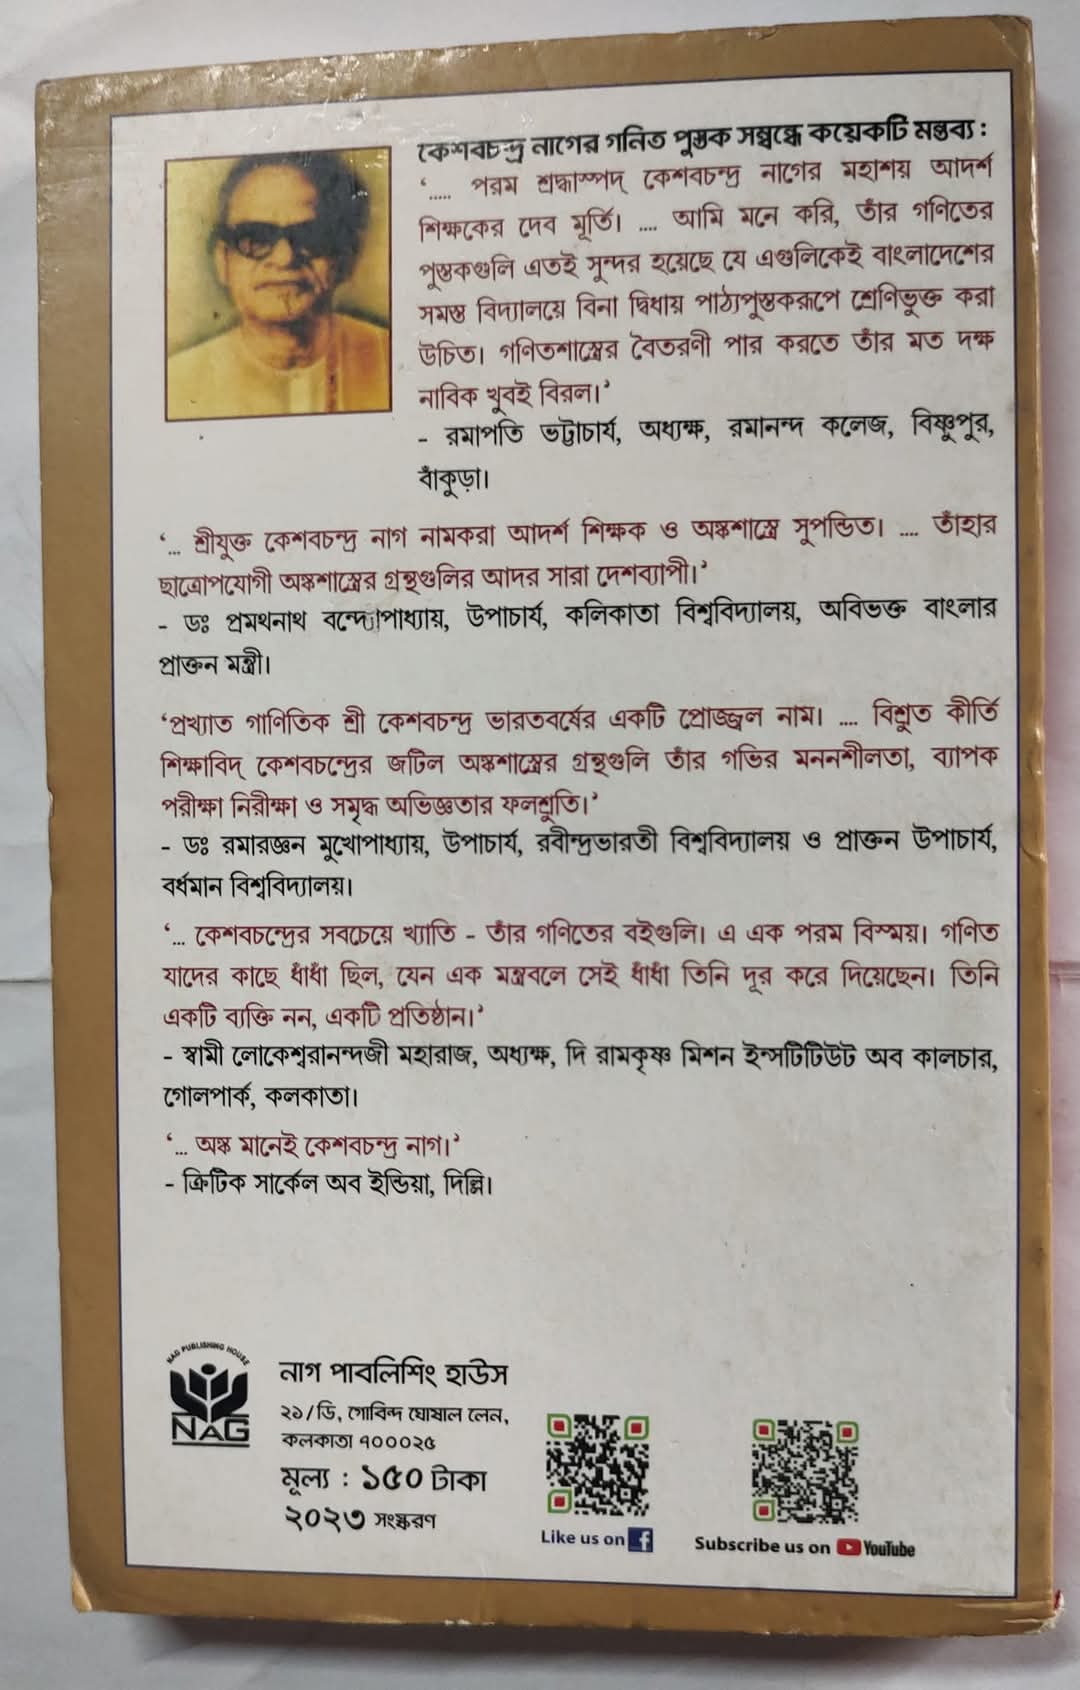 কেশবচন্দ্র নাগের গনিত পুস্তক সম্বন্ধে কয়েকটি মন্তব্য :
‘.... পরম শ্রদ্ধাস্পদ্ কেশবচন্দ্র নাগের মহাশয় আদর্শ
শিক্ষকের দেব মূর্তি। .... আমি মনে করি, তাঁর গণিতের
পুস্তকগুলি এতই সুন্দর হয়েছে যে এগুলিকেই বাংলাদেশের
সমস্ত বিদ্যালয়ে বিনা দ্বিধায় পাঠ্যপুস্তকরূপে শ্রেণিভুক্ত করা
উচিত। গণিতশাস্ত্রের বৈতরণী পার করতে তাঁর মত দক্ষ
নাবিক খুবই বিরল।’
- রমাপতি ভট্টাচার্য, অধ্যক্ষ, রমানন্দ কলেজ, বিষ্ণুপুর,
বাঁকুড়া।
‘... শ্রীযুক্ত কেশবচন্দ্র নাগ নামকরা আদর্শ শিক্ষক ও অঙ্কশাস্ত্রে সুপন্ডিত। .... তাঁহার
ছাত্রোপযোগী অঙ্কশাস্ত্রের গ্রন্থগুলির আদর সারা দেশব্যাপী।’
- ডঃ প্রমথনাথ বন্দ্যোপাধ্যায়, উপাচার্য, কলিকাতা বিশ্ববিদ্যালয়, অবিভক্ত বাংলার
প্রাক্তন মন্ত্রী।
‘প্রখ্যাত গাণিতিক শ্রী কেশবচন্দ্র ভারতবর্ষের একটি প্রোজ্জ্বল নাম। .... বিশ্রুত কীর্তি
শিক্ষাবিদ্ কেশবচন্দ্রের জটিল অঙ্কশাস্ত্রের গ্রন্থগুলি তাঁর গভির মননশীলতা, ব্যাপক
পরীক্ষা নিরীক্ষা ও সমৃদ্ধ অভিজ্ঞতার ফলশ্রুতি।’
- ডঃ রমারজ্ঞন মুখোপাধ্যায়, উপাচার্য, রবীন্দ্রভারতী বিশ্ববিদ্যালয় ও প্রাক্তন উপাচার্য,
বর্ধমান বিশ্ববিদ্যালয়।
‘... কেশবচন্দ্রের সবচেয়ে খ্যাতি - তাঁর গণিতের বইগুলি। এ এক পরম বিস্ময়। গণিত
যাদের কাছে ধাঁধাঁ ছিল, যেন এক মন্ত্রবলে সেই ধাঁধাঁ তিনি দূর করে দিয়েছেন। তিনি
একটি ব্যক্তি নন, একটি প্রতিষ্ঠান।’
- স্বামী লোকেশ্বরানন্দজী মহারাজ, অধ্যক্ষ, দি রামকৃষ্ণ মিশন ইন্সটিটিউট অব কালচার,
গোলপার্ক, কলকাতা।
‘... অঙ্ক মানেই কেশবচন্দ্র নাগ।’
- ক্রিটিক সার্কেল অব ইন্ডিয়া, দিল্লি।
NAG PUBLISHING HOUSE
NAG
নাগ পাবলিশিং হাউস
২১/ডি, গোবিন্দ ঘোষাল লেন,
কলকাতা ৭০০০২৫
মূল্য : ১৫০ টাকা
২০২৩ সংস্করণ
Like us on f
Subscribe us on YouTube